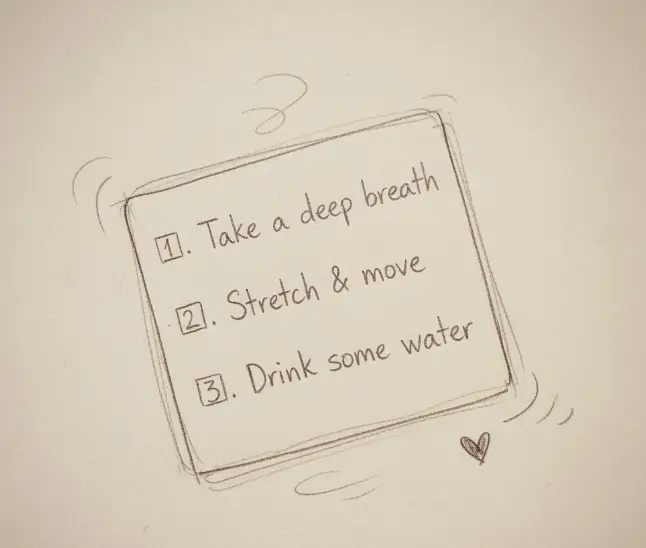 1. Take a deep breath
2. Stretch & move
3. Drink some water